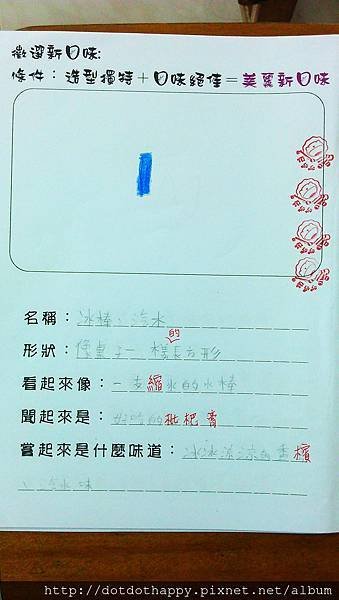 徵選新口味:
條件：造型獨特＋口味絕佳＝美麗新口味
名稱：冰棒、汽水
的
形狀：像桌子一樣長方形
看起來像：一支縮水的冰棒
聞起來是：好吃的枇杷膏
嘗起來是什麼味道：冰冰涼涼的香檳
、汽水味
http://dotdothappy.pixnet.net/album